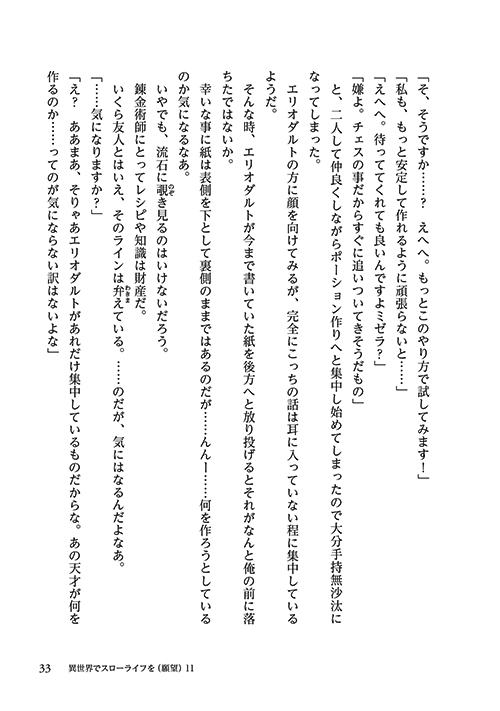 「そ、そうですか……？　えへへ。もっとこのやり方で試してみます！」
「私も、もっと安定して作れるように頑張らないと……」
「えへへ。待っててくれても良いんですよミゼラ？」
「嫌よ。チェスの事だからすぐに追いついてきそうだもの」
　と、二人して仲良くしながらポーション作りへと集中し始めてしまったので大分手持無沙汰に
なってしまった。
　エリオダルトの方に顔を向けてみるが、完全にこっちの話は耳に入っていない程に集中している
ようだ。
　そんな時、エリオダルトが今まで書いていた紙を後方へと放り投げるとそれがなんと俺の前に落
ちたではないか。
　幸いな事に紙は表側を下として裏側のままではあるのだが……んんー……何を作ろうとしている
のか気になるなあ。
　いやでも、流石に覗き見るのはいけないだろう。
　錬金術師にとってレシピや知識は財産だ。
　いくら友人とはいえ、そのラインは弁えている。……のだが、気にはなるんだよなあ。
「……気になりますか？」
「え？　ああまあ、そりゃあエリオダルトがあれだけ集中しているものだからな。あの天才が何を
作るのか……ってのが気にならない訳はないよな」
33　異世界でスローライフを（願望）11